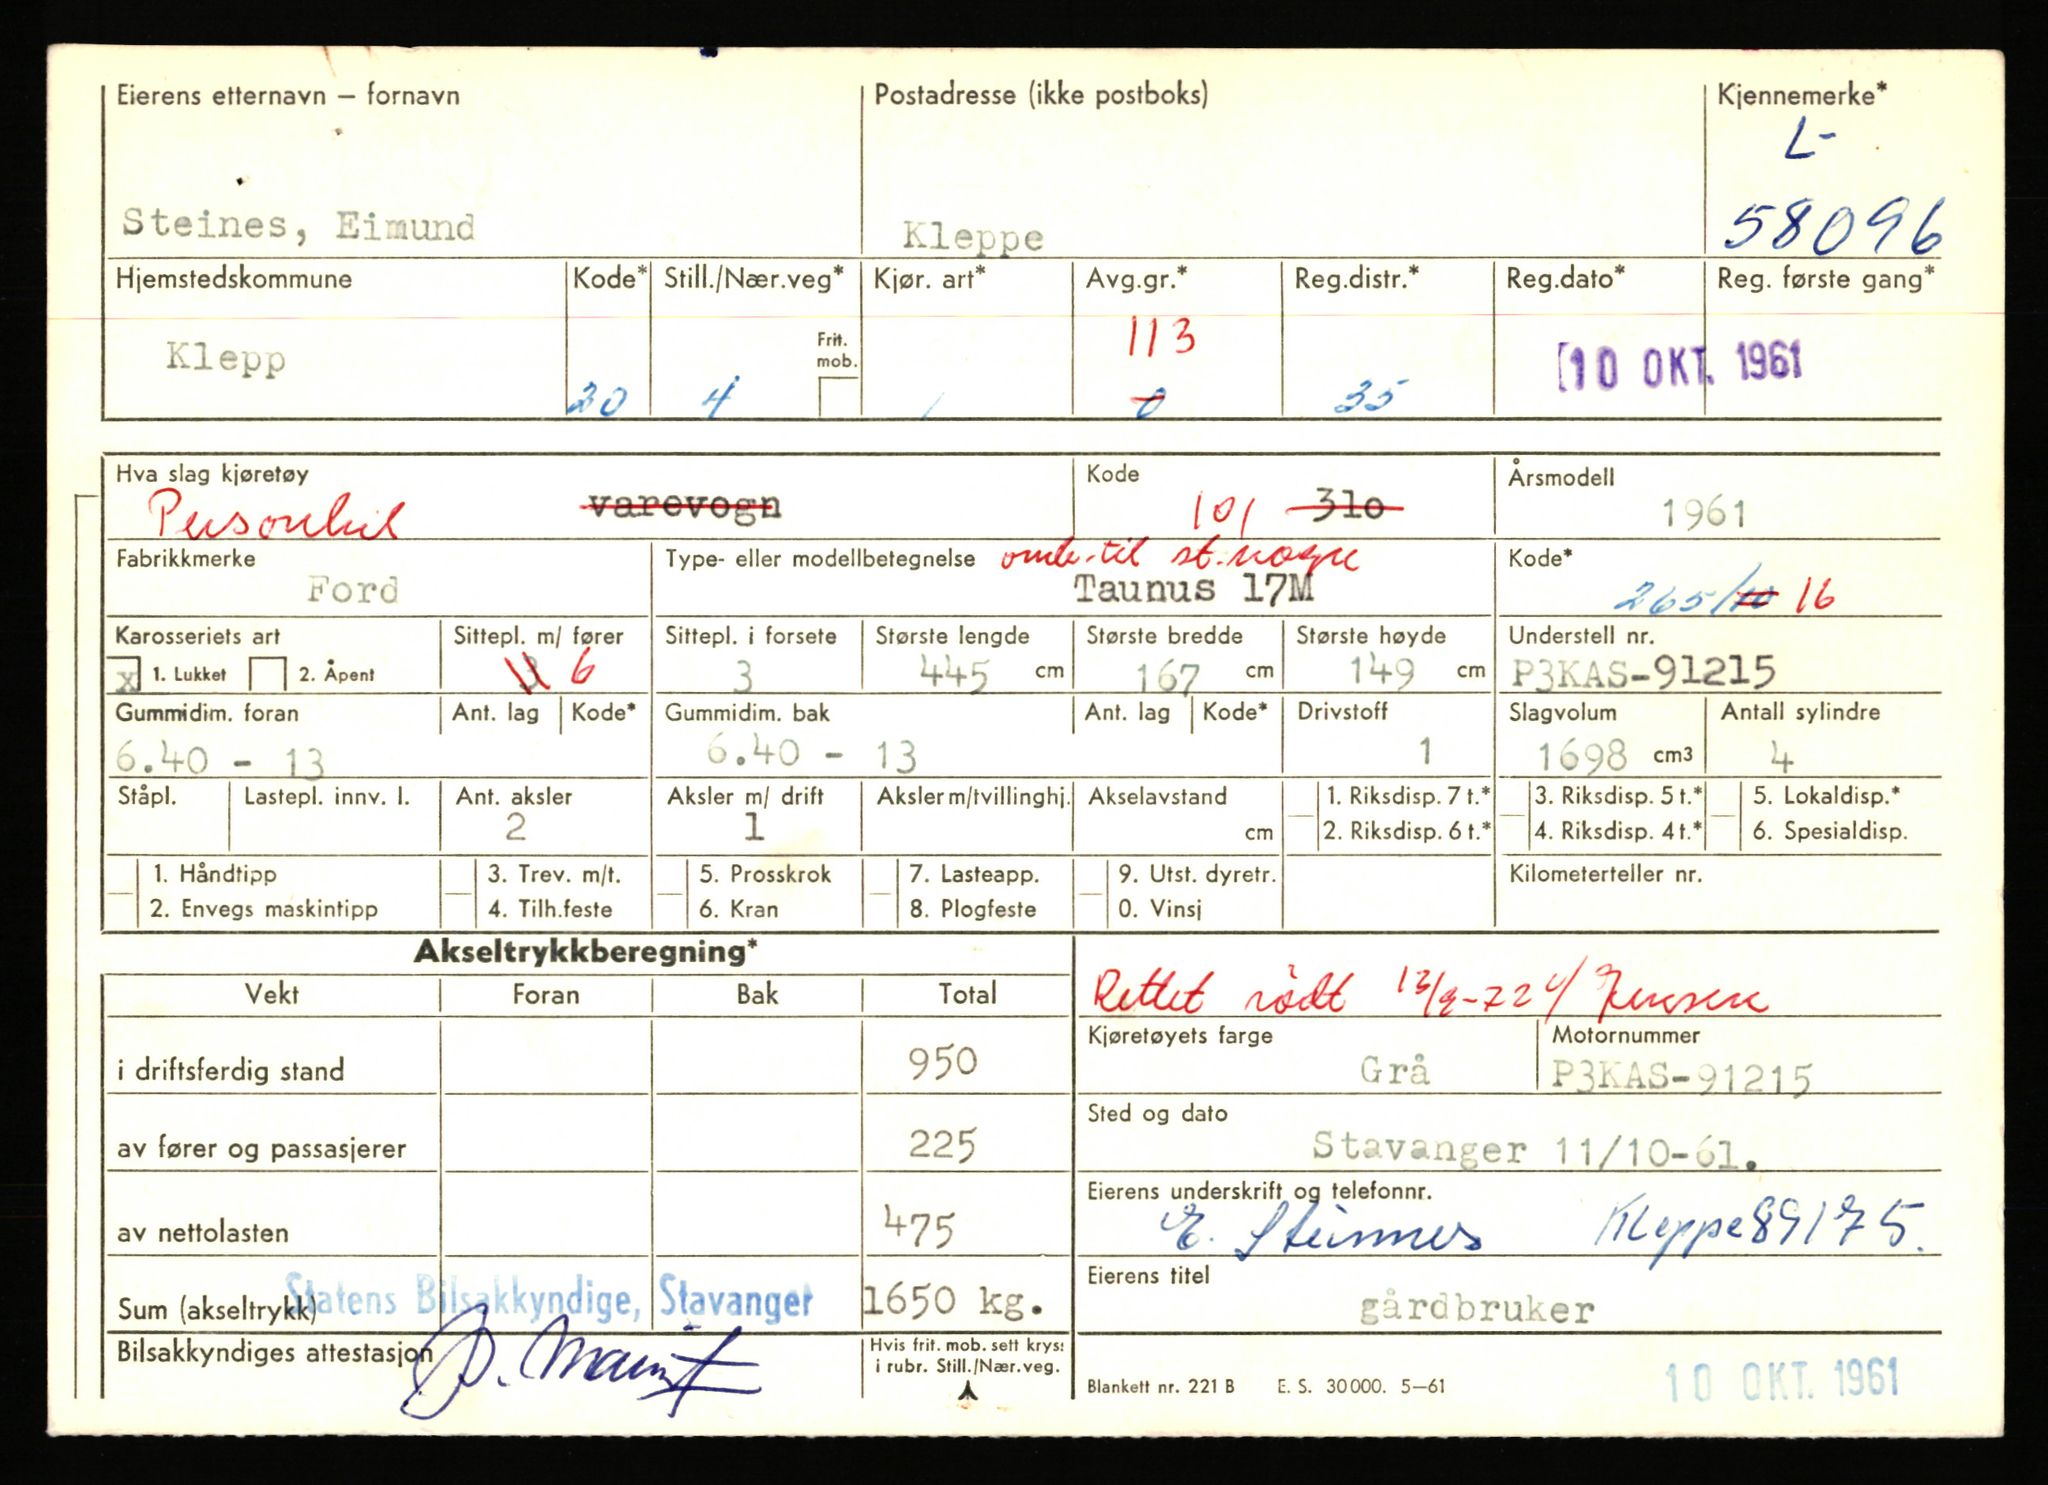 Eierens etternavn – fornavn Postadresse (ikke postboks) Kjennemerke*
L-
Steines, Eimund Kleppe 58096
Hjemstedskommune Kode* Still./Nær.veg* Kjør. art* Avg.gr.* Reg.distr.* Reg.dato* Reg. første gang*
Frit. 113
Klepp mob. 10 OKT. 1961
20 4 1 0 35
Hva slag kjøretøy Kode Årsmodell
Personbil varevogn 101 310 1961
Fabrikkmerke Type- eller modellbetegnelse omb. til st.vogn Kode*
Ford Taunus 17M 265/10 16
Karosseriets art Sittepl. m/ fører Sittepl. i forsete Største lengde Største bredde Største høyde Understell nr.
x 1. Lukket 2. Åpent 3 6 3 445 cm 167 cm 149 cm P3KAS-91215
Gummidim. foran Ant. lag Kode* Gummidim. bak Ant. lag Kode* Drivstoff Slagvolum Antall sylindre
6.40 - 13 6.40 - 13 1 1698 cm3 4
Ståpl. Lastepl. innv. l. Ant. aksler Aksler m/ drift Aksler m/tvillinghj. Akselavstand 1. Riksdisp. 7 t.* 3. Riksdisp. 5 t.* 5. Lokaldisp.*
2 1 cm 2. Riksdisp. 6 t.* 4. Riksdisp. 4 t.* 6. Spesialdisp.
1. Håndtipp 3. Trev. m/t. 5. Prosskrok 7. Lasteapp. 9. Utst. dyretr. Kilometerteller nr.
2. Envegs maskintipp 4. Tilh.feste 6. Kran 8. Plogfeste 0. Vinsj
Akseltrykkberegning*
Vekt Foran Bak Total Rettet rødt 13/9-72 Jensen
i driftsferdig stand 950
Kjøretøyets farge Motornummer
Grå P3KAS-91215
Sted og dato
av fører og passasjerer 225 Stavanger 11/10-61.
Eierens underskrift og telefonnr.
av nettolasten 475 E. Steinnes Kleppe 89175.
Eierens titel
Sum (akseltrykk) Statens Bilsakkyndige, Stavanger 1650 kg. gårdbruker
Bilsakkyndiges attestasjon Hvis frit. mob. sett kryss
i rubr. Still./Nær.veg.
Blankett nr. 221 B E. S. 30000. 5–61 10 OKT. 1961